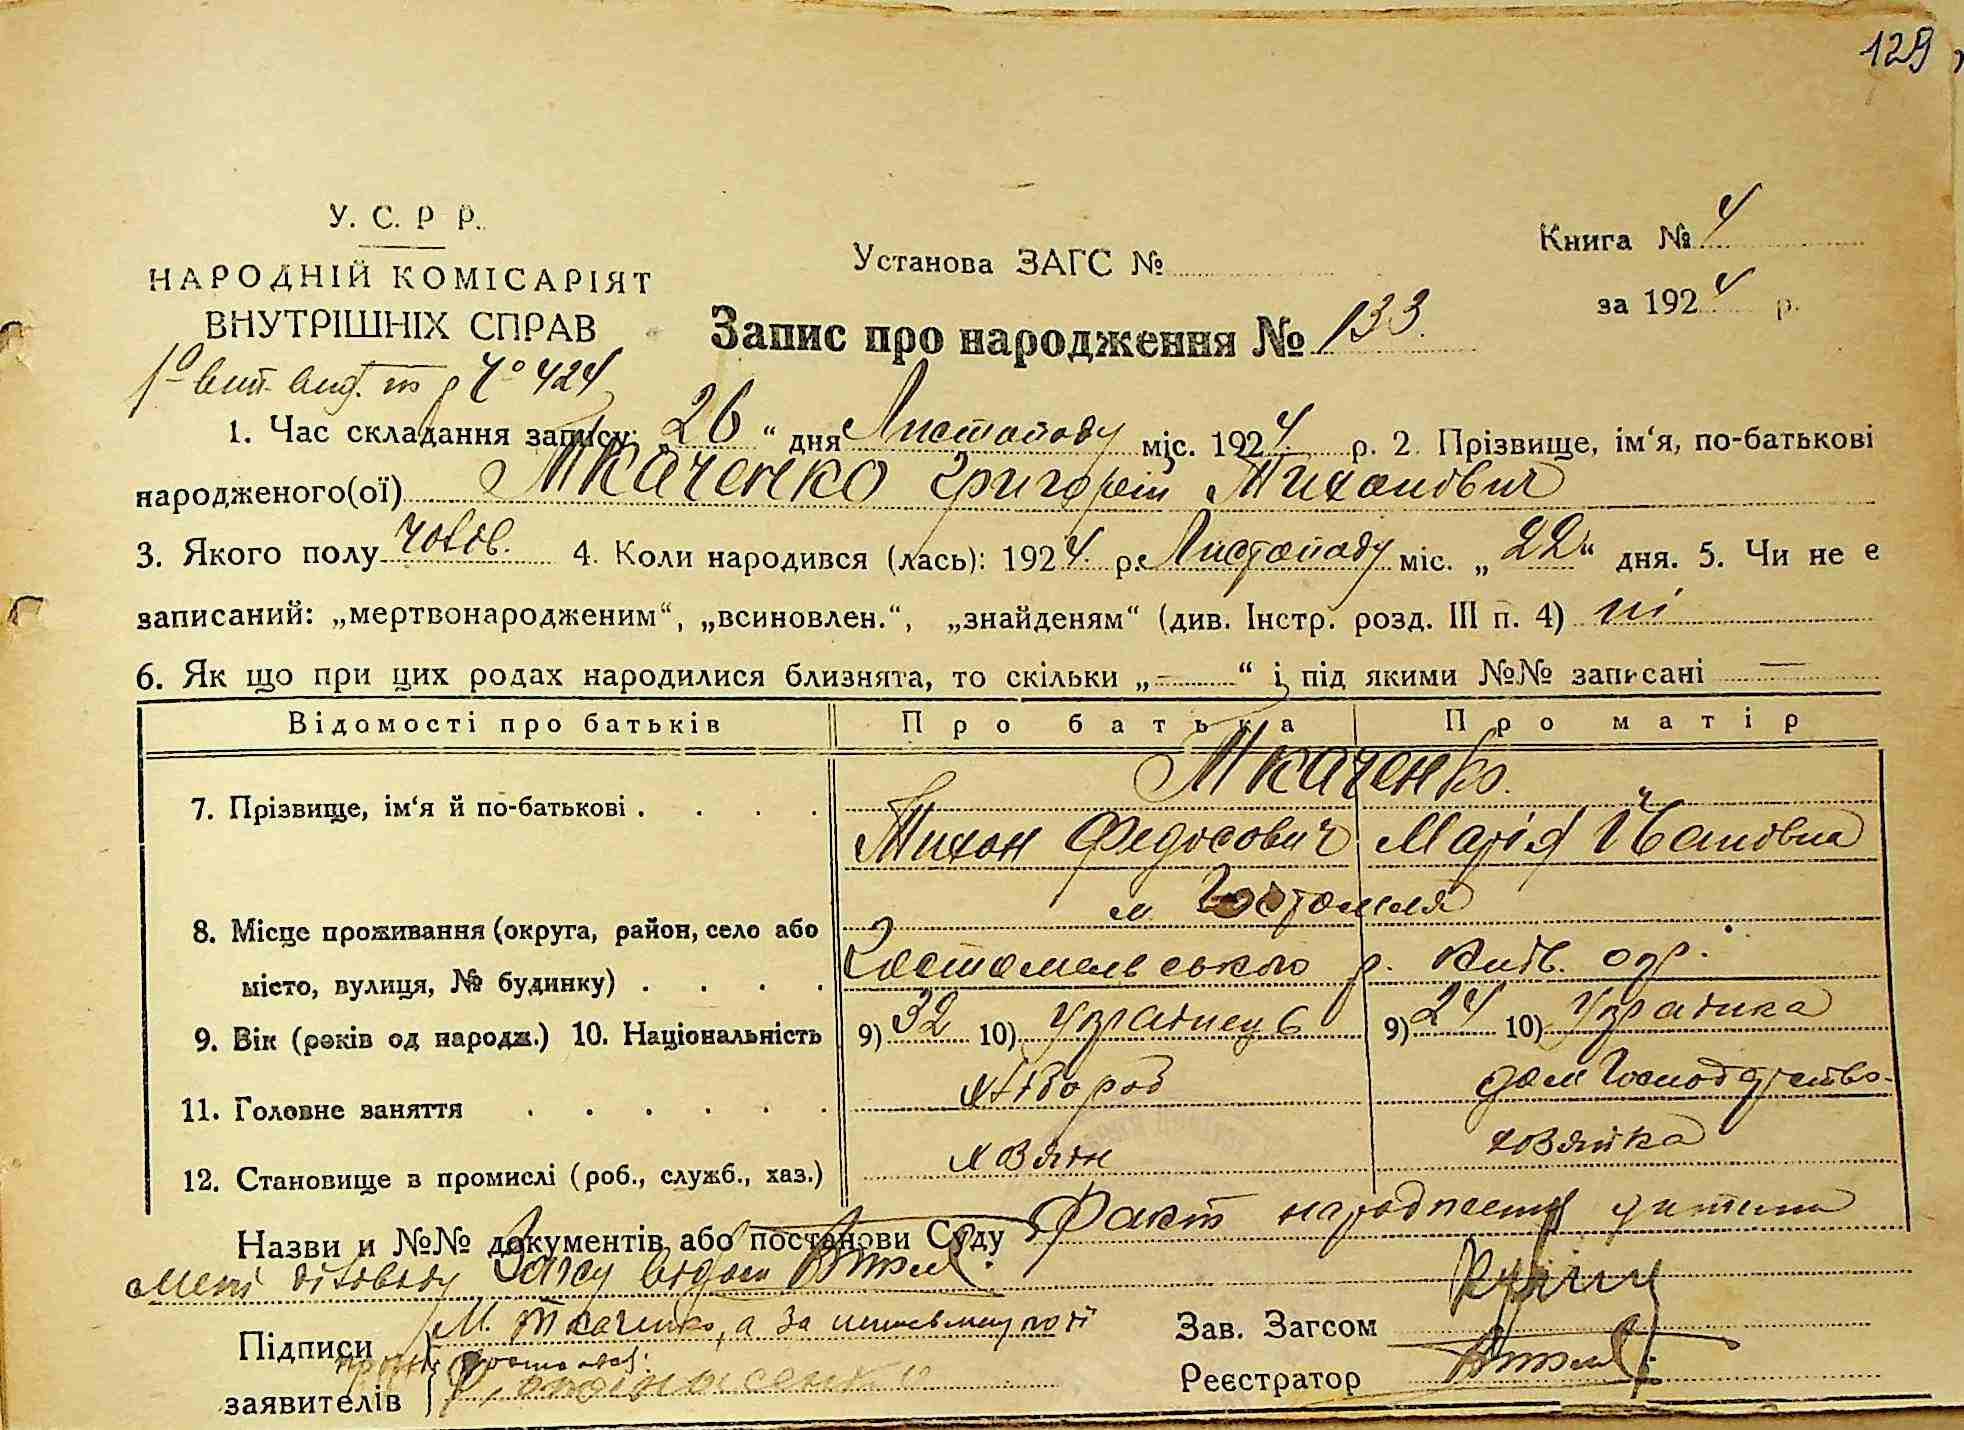 129
У. С. Р Р.
НАРОДНІЙ КОМІСАРІЯТ
ВНУТРІШНІХ СПРАВ
Установа ЗАГС №
Книга № 4
за 1924 р.
Запис про народження № 133
№ 424
1. Час складання запису: „26“ дня Листопаду міс. 1924 р. 2. Прізвище, ім‘я, по-батькові
народженого(ої) Ткаченко Григорій Тихонович
3. Якого полу чолов. 4. Коли народився (лась): 1924 р. Листопаду міс. „22“ дня. 5. Чи не є
записаний: „мертвонародженим“, „всиновлен.“, „знайденям“ (див. Інстр. розд. III п. 4) ні
6. Як що при цих родах народилися близнята, то скільки „—“ і під якими №№ записані —
Відомості про батьків Про батька Про матір
7. Прізвище, ім‘я й по-батькові . . . . Ткаченко
Тихон Федосович Марія Йвановна
8. Місце проживання (округа, район, село або м. Гостомля
місто, вулиця, № будинку) . . . . Гостомельського р. Київ. окр.
9. Вік (років од народж.) 10. Національність 9) 32 10) Українець 9) 24 10) Українка
11. Головне заняття . . . . . . хлібороб дом Господарство
12. Становище в промислі (роб., служб., хаз.) хозяїн хозяйка
Назви и №№ документів або постанови Суду Факт народження дитини
мені діловоду Загсу відом
Підписи М. Ткаченко, а за
заявителів
Зав. Загсом
Реєстратор